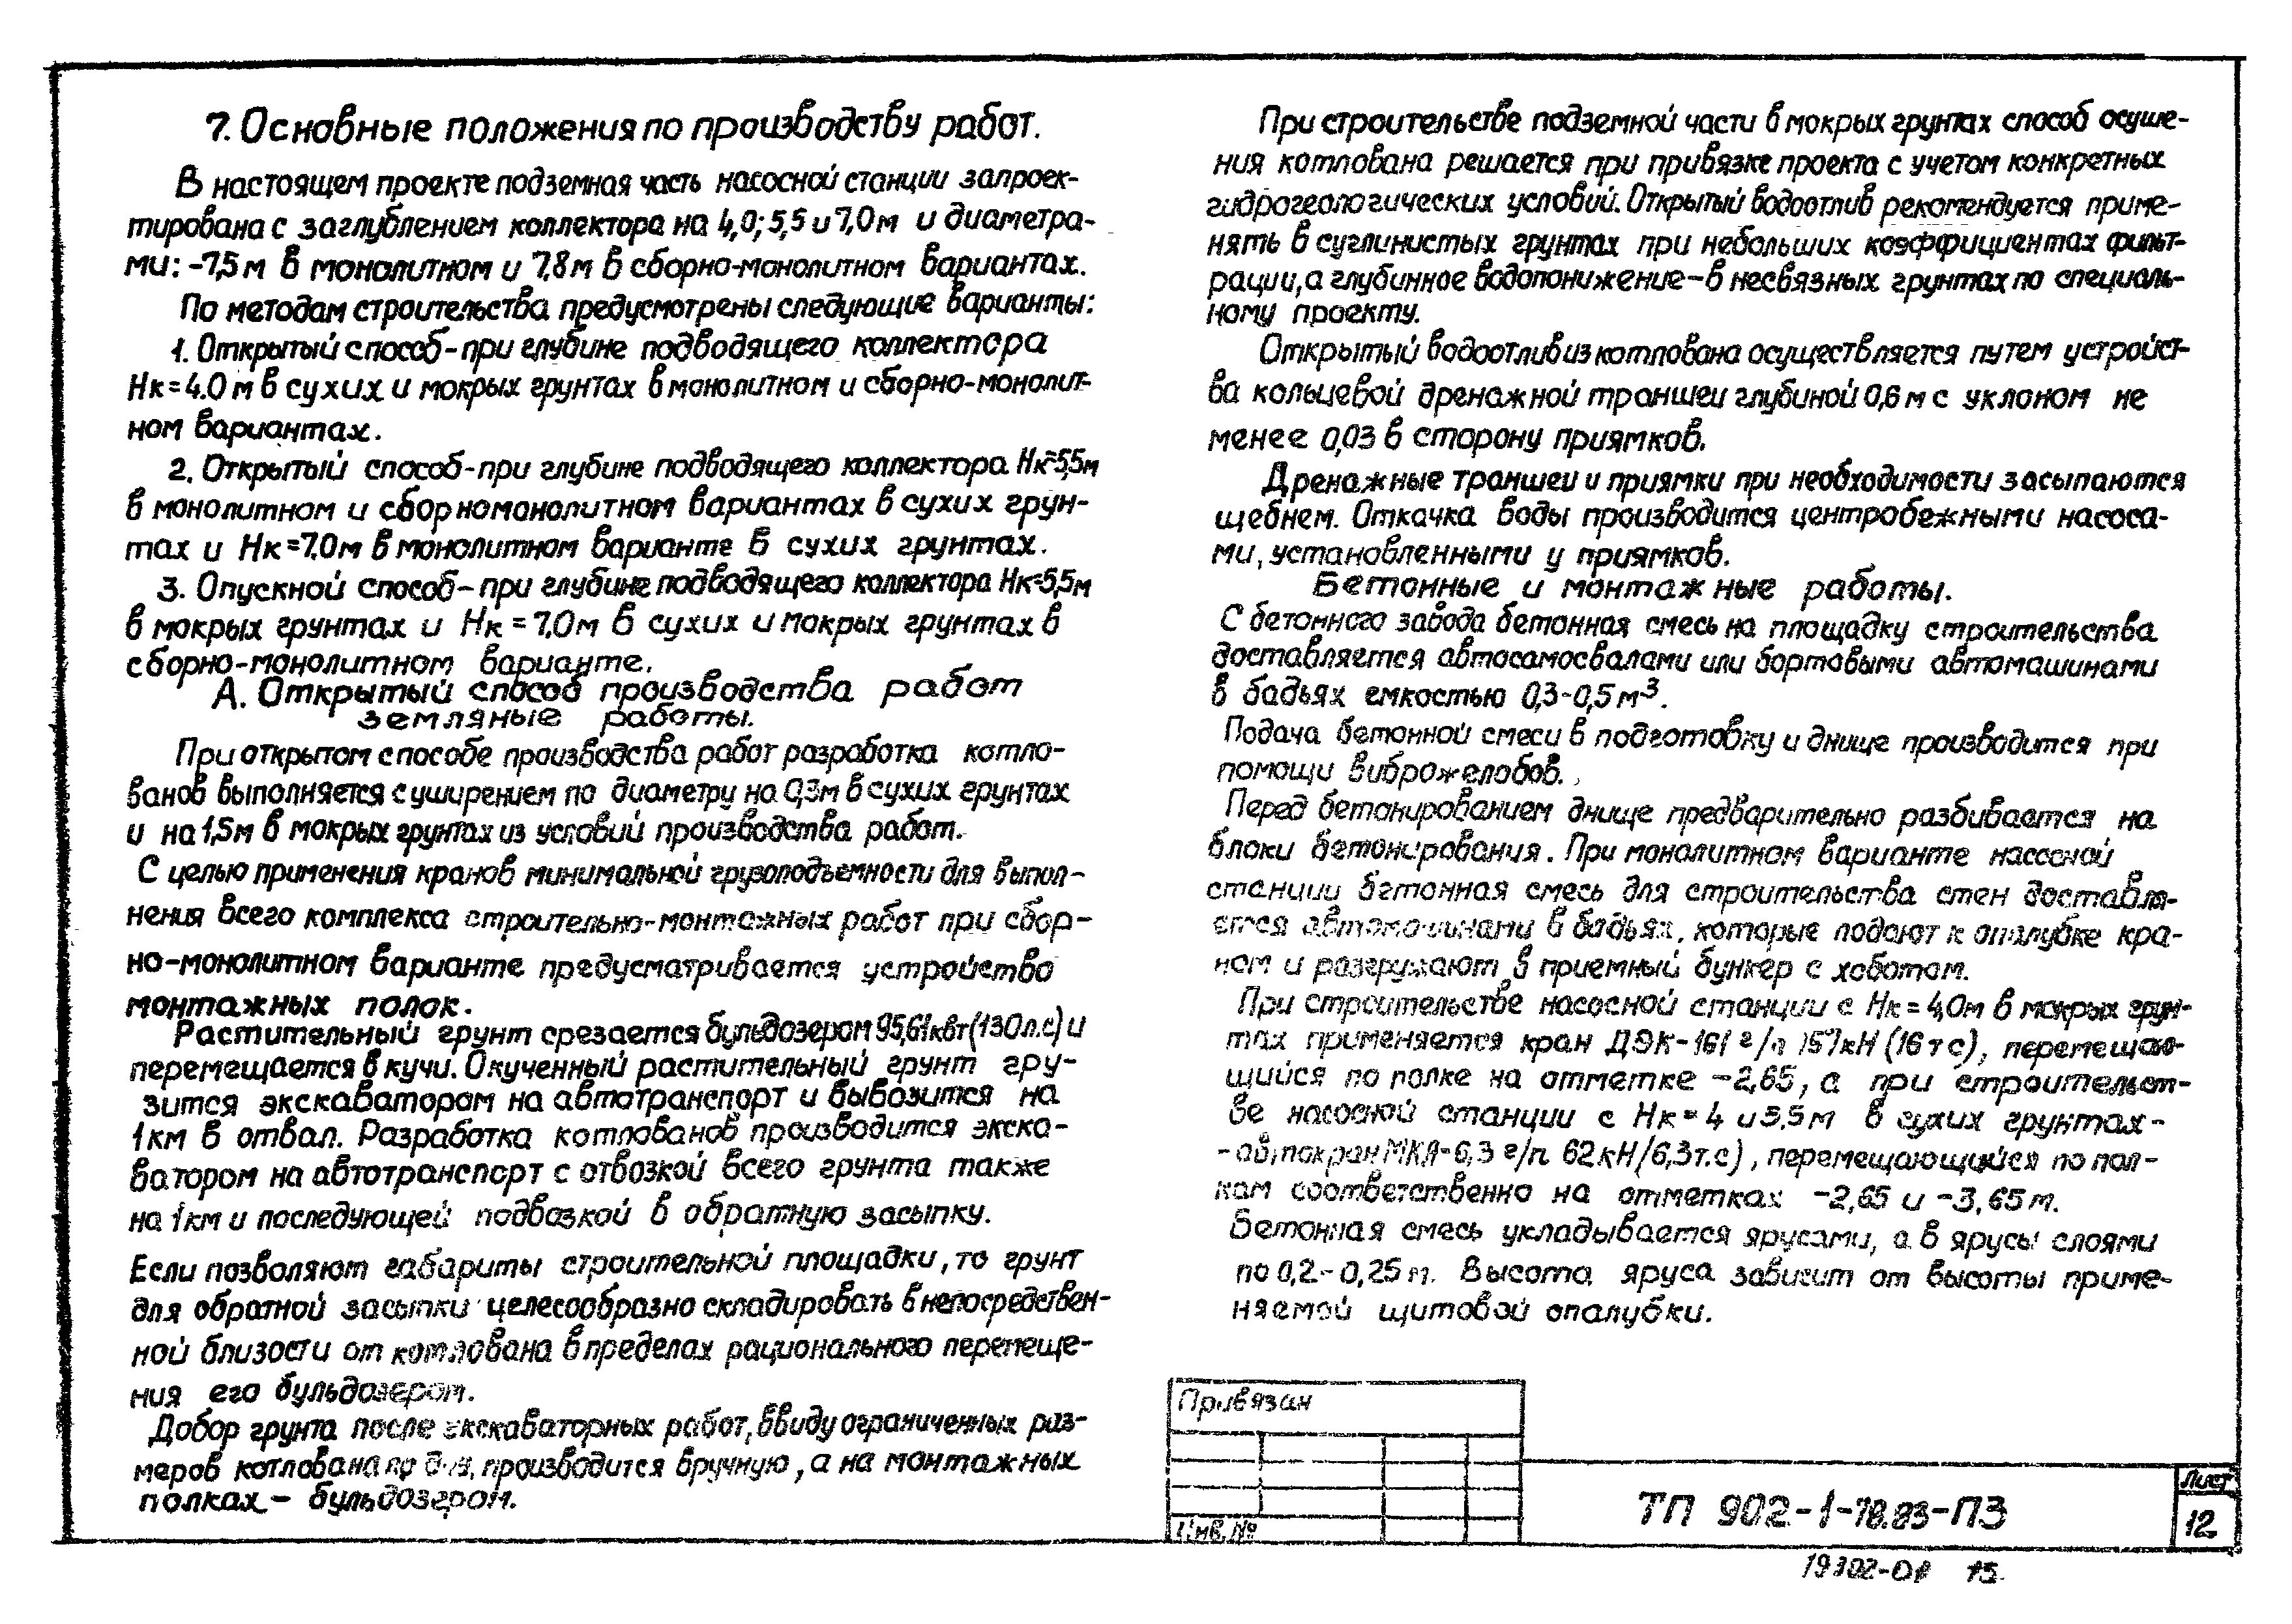 7. Основные положения по производству работ.
В настоящем проекте подземная часть насосной станции запроек-
тирована с заглублением коллектора на 4,0; 5,5 и 7,0 м и диаметра-
ми: -7,5 м в монолитном и 7,8 м в сборно-монолитном вариантах.
По методам строительства предусмотрены следующие варианты:
1. Открытый способ - при глубине подводящего коллектора
Нк = 4.0 м в сухих и мокрых грунтах в монолитном и сборно-монолит-
ном вариантах.
2. Открытый способ - при глубине подводящего коллектора Нк=5,5м
в монолитном и сборномонолитном вариантах в сухих грун-
тах и Нк = 7.0м в монолитном варианте в сухих грунтах.
3. Опускной способ - при глубине подводящего коллектора Нк=5,5м
в мокрых грунтах и Нк = 7,0м в сухих и мокрых грунтах в
сборно-монолитном варианте.
А. Открытый способ производства работ
земляные работы.
При открытом способе производства работ разработка котло-
ванов выполняется с уширением по диаметру на 0,3м в сухих грунтах
и на 1,5м в мокрых грунтах из условий производства работ.
С целью применения кранов минимальной грузоподъемности для выпол-
нения всего комплекса строительно-монтажных работ при сбор-
но-монолитном варианте предусматривается устройство
монтажных полок.
Растительный грунт срезается бульдозером 95,61квт (130л.с) и
перемещается в кучи. Окученный растительный грунт гру-
зится экскаватором на автотранспорт и вывозится на
1км в отвал. Разработка котлованов производится экска-
ватором на автотранспорт с отвозкой всего грунта также
на 1км и последующей подвозкой в обратную засыпку.
Если позволяют габариты строительной площадки, то грунт
для обратной засыпки целесообразно складировать в непосредствен-
ной близости от котлована в пределах рационального перемеще-
ния его бульдозером.
Добор грунта после экскаваторных работ, ввиду ограниченных раз-
меров котлована по дну, производится вручную, а на монтажных
полках - бульдозером.
При строительстве подземной части в мокрых грунтах способ осуше-
ния котлована решается при привязке проекта с учетом конкретных
гидрогеологических условий. Открытый водоотлив рекомендуется приме-
нять в суглинистых грунтах при небольших коэффициентах фильт-
рации, а глубинное водопонижение - в несвязных грунтах по специаль-
ному проекту.
Открытый водоотлив из котлована осуществляется путем устройст-
ва кольцевой дренажной траншеи глубиной 0,6 м с уклоном не
менее 0,03 в сторону приямков.
Дренажные траншеи и приямки при необходимости засыпаются
щебнем. Откачка воды производится центробежными насоса-
ми, установленными у приямков.
Бетонные и монтажные работы.
С бетонного завода бетонная смесь на площадку строительства
доставляется автосамосвалами или бортовыми автомашинами
в бадьях емкостью 0,3-0,5 м³.
Подача бетонной смеси в подготовку и днище производится при
помощи виброжелобов.
Перед бетонированием днище предварительно разбивается на
блоки бетонирования. При монолитном варианте насосной
станции бетонная смесь для строительства стен доставля-
ется автомашинами в бадьях, которые подают к опалубке кра-
ном и разгружают в приемный бункер с хоботом.
При строительстве насосной станции с Нк = 4,0м в мокрых грун-
тах применяется кран ДЭК-161 г/п 157кН (16 тс), перемещаю-
щийся по полке на отметке -2,65, а при строительст-
ве насосной станции с Нк = 4 и 5,5м в сухих грунтах -
- автокран МКА-6,3 г/п 62кН/6,3т.с), перемещающийся по пол-
кам соответственно на отметках -2,65 и -3,65м.
Бетонная смесь укладывается ярусами, а в ярусы слоями
по 0,2-0,25 м. Высота яруса зависит от высоты приме-
няемой щитовой опалубки.
Привязан
Инв. №
ТП 902-1-78.83-ПЗ
Лист
12
19302-01 15